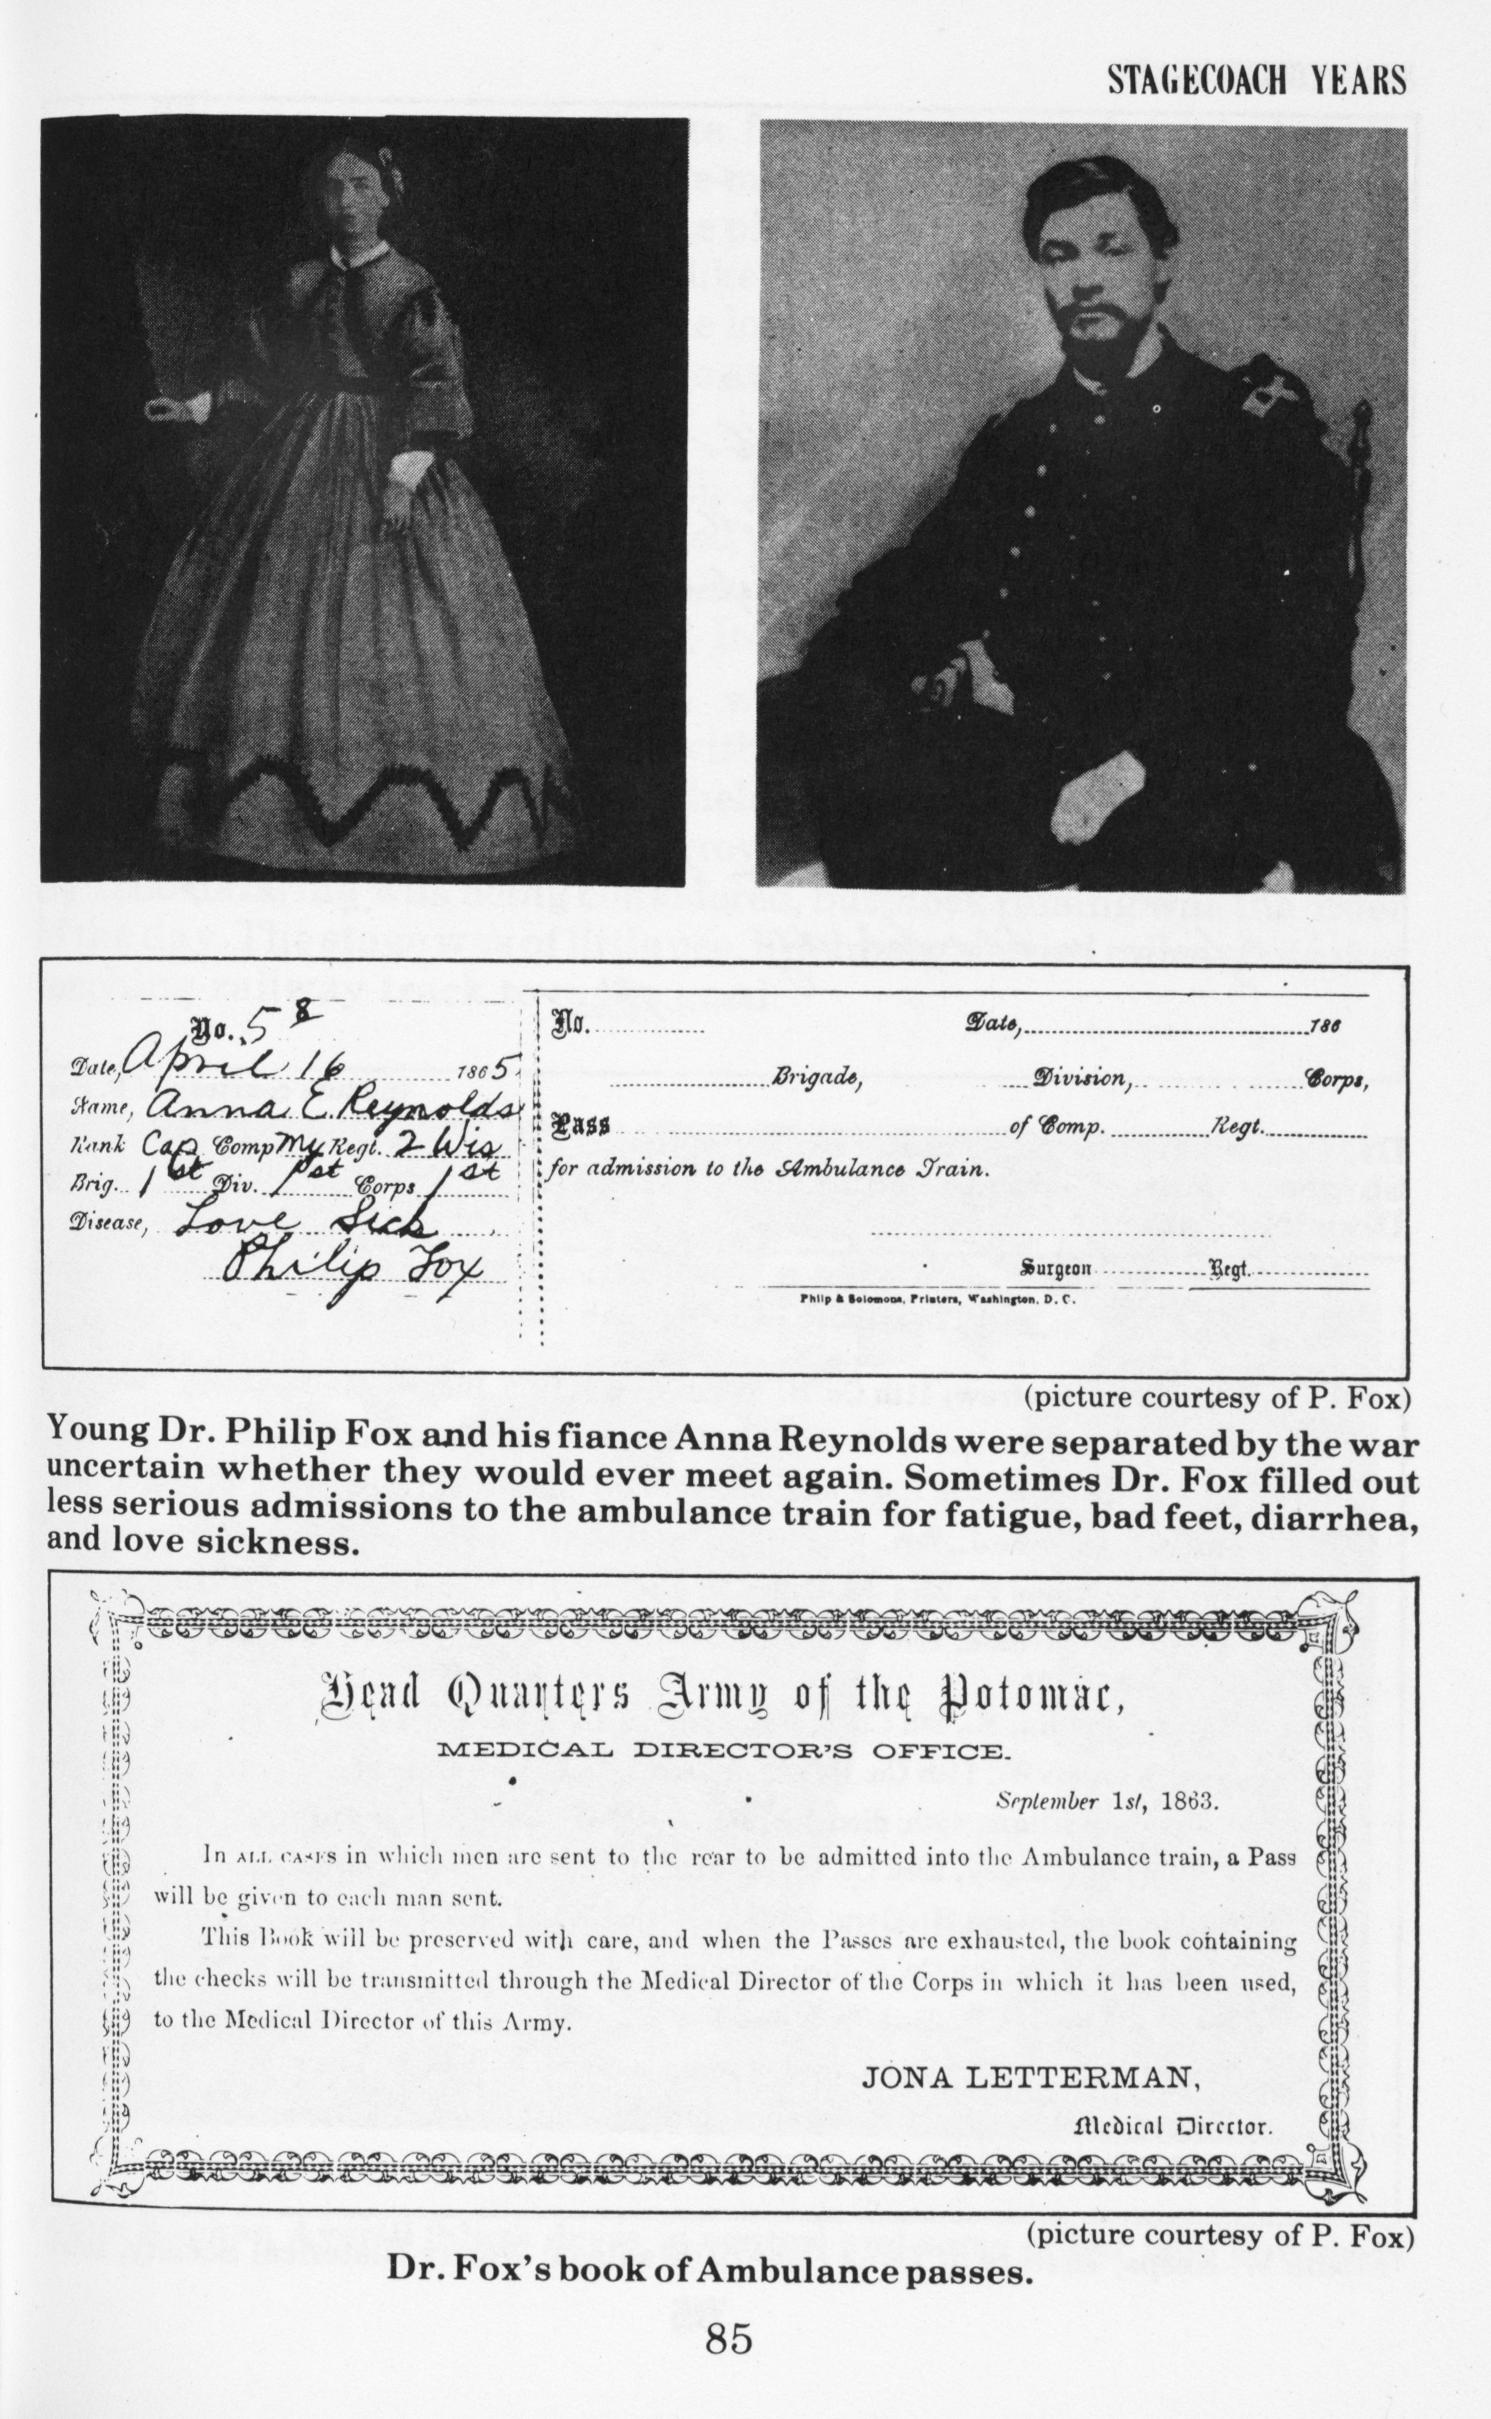 STAGECOACH YEARS
No. 58
Date, April 16 1865
Name, Anna E. Reynolds
Rank Cap Comp My Regt. 2 Wis
Brig. 1st Div. 1st Corps 1st
Disease, Love Sick
Philip Fox
No. Date, 186
Brigade, Division, Corps,
Pass of Comp. Regt.
for admission to the Ambulance Train.
Surgeon Regt.
Philp & Solomons, Printers, Washington, D. C.
(picture courtesy of P. Fox)
Young Dr. Philip Fox and his fiance Anna Reynolds were separated by the war
uncertain whether they would ever meet again. Sometimes Dr. Fox filled out
less serious admissions to the ambulance train for fatigue, bad feet, diarrhea,
and love sickness.
Head Quarters Army of the Potomac,
MEDICAL DIRECTOR'S OFFICE.
September 1st, 1863.
In ALL CASES in which men are sent to the rear to be admitted into the Ambulance train, a Pass
will be given to each man sent.
This Book will be preserved with care, and when the Passes are exhausted, the book containing
the checks will be transmitted through the Medical Director of the Corps in which it has been used,
to the Medical Director of this Army.
JONA LETTERMAN,
Medical Director.
(picture courtesy of P. Fox)
Dr. Fox's book of Ambulance passes.
85